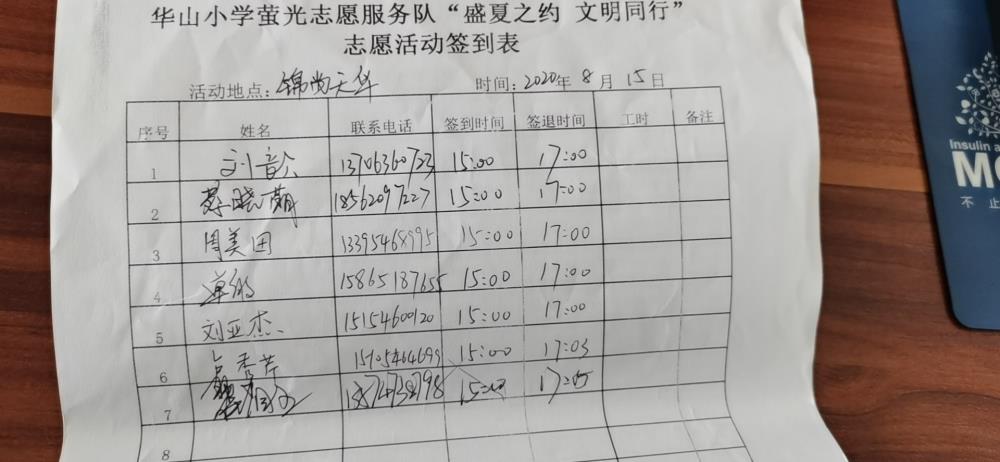 华山小学萤光志愿服务队“盛夏之约 文明同行”
志愿活动签到表
活动地点：锦尚天华 时间：2020年8月15日
序号 姓名 联系电话 签到时间 签退时间 工时 备注
1 刘音 13706360723 15:00 17:00
2 晓萌 18562097227 15:00 17:00
3 周美田 13395468995 15:00 17:00
4 15865187655 15:00 17:00
5 刘亚杰 15154600120 15:00 17:00
6 秀芹 15105464699 15:00 17:03
7 15:00 17:05
8
Insulin a
MO
不 止